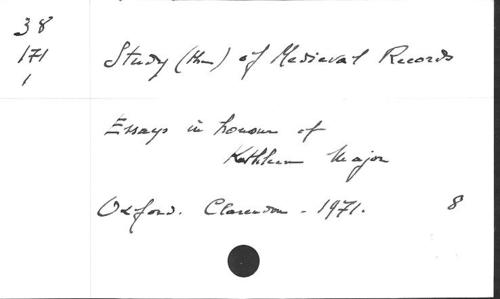 38
171
1
Study (The) of Medieval Records
Essays in honour of
Kathleen Major
Oxford. Clarendon - 1971. 8